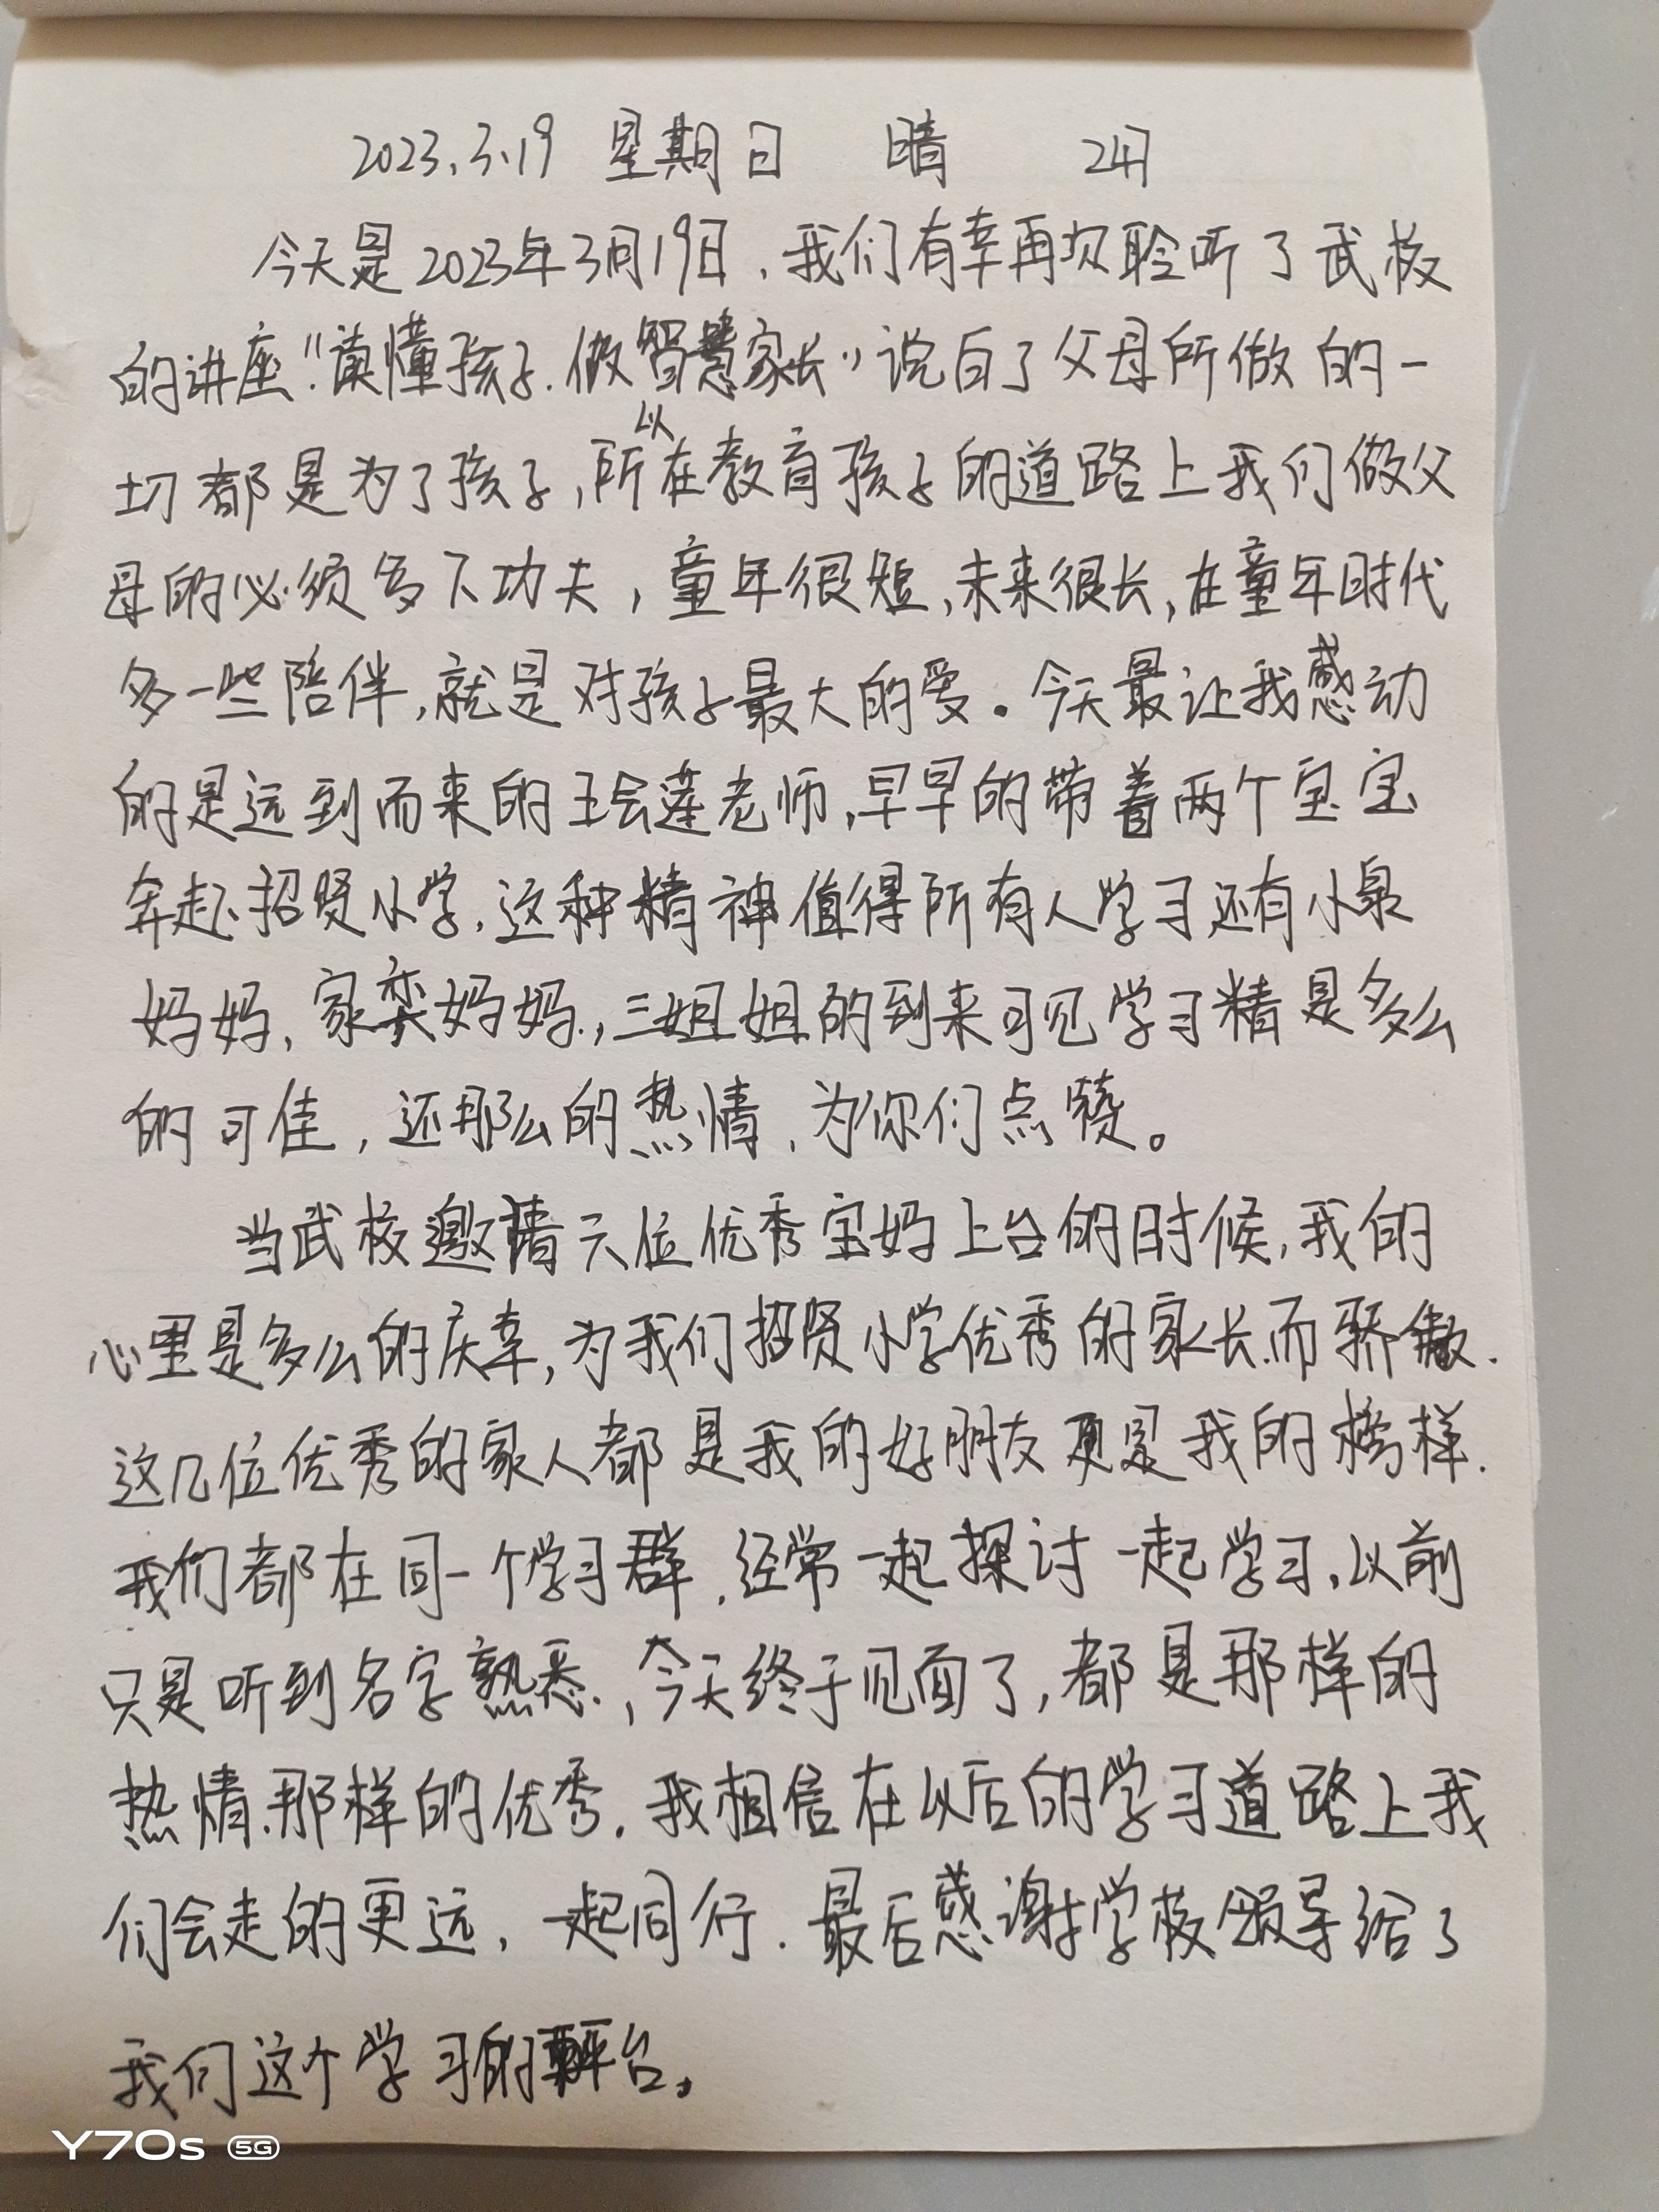 2023.3.19 星期日 晴
今天是2023年3月19日，我们有幸再次聆听了武校
的讲座“读懂孩子.做智慧家长”说白了父母所做的一
切都是为了孩子,所以在教育孩子的道路上我们做父
母的必须多下功夫，童年很短,未来很长,在童年时代
多一些陪伴,就是对孩子最大的爱。今天最让我感动
的是远到而来的王会莲老师,早早的带着两个宝宝
奔赴招贤小学,这种精神值得所有人学习,还有小泉
妈妈,家奕妈妈,三姐姐的到来可见学习精是多么
的可佳，还那么的热情,为你们点赞。
当武校邀请六位优秀宝妈上台的时候,我的
心里是多么的庆幸,为我们招贤小学优秀的家长而骄傲.
这几位优秀的家人都是我的好朋友更是我的榜样.
我们都在同一个学习群,经常一起探讨一起学习,以前
只是听到名字熟悉,今天终于见面了,都是那样的
热情,那样的优秀.我相信在以后的学习道路上我
们会走的更远,一起同行.最后感谢学校领导给了
我们这个学习的平台。
Y70s 5G